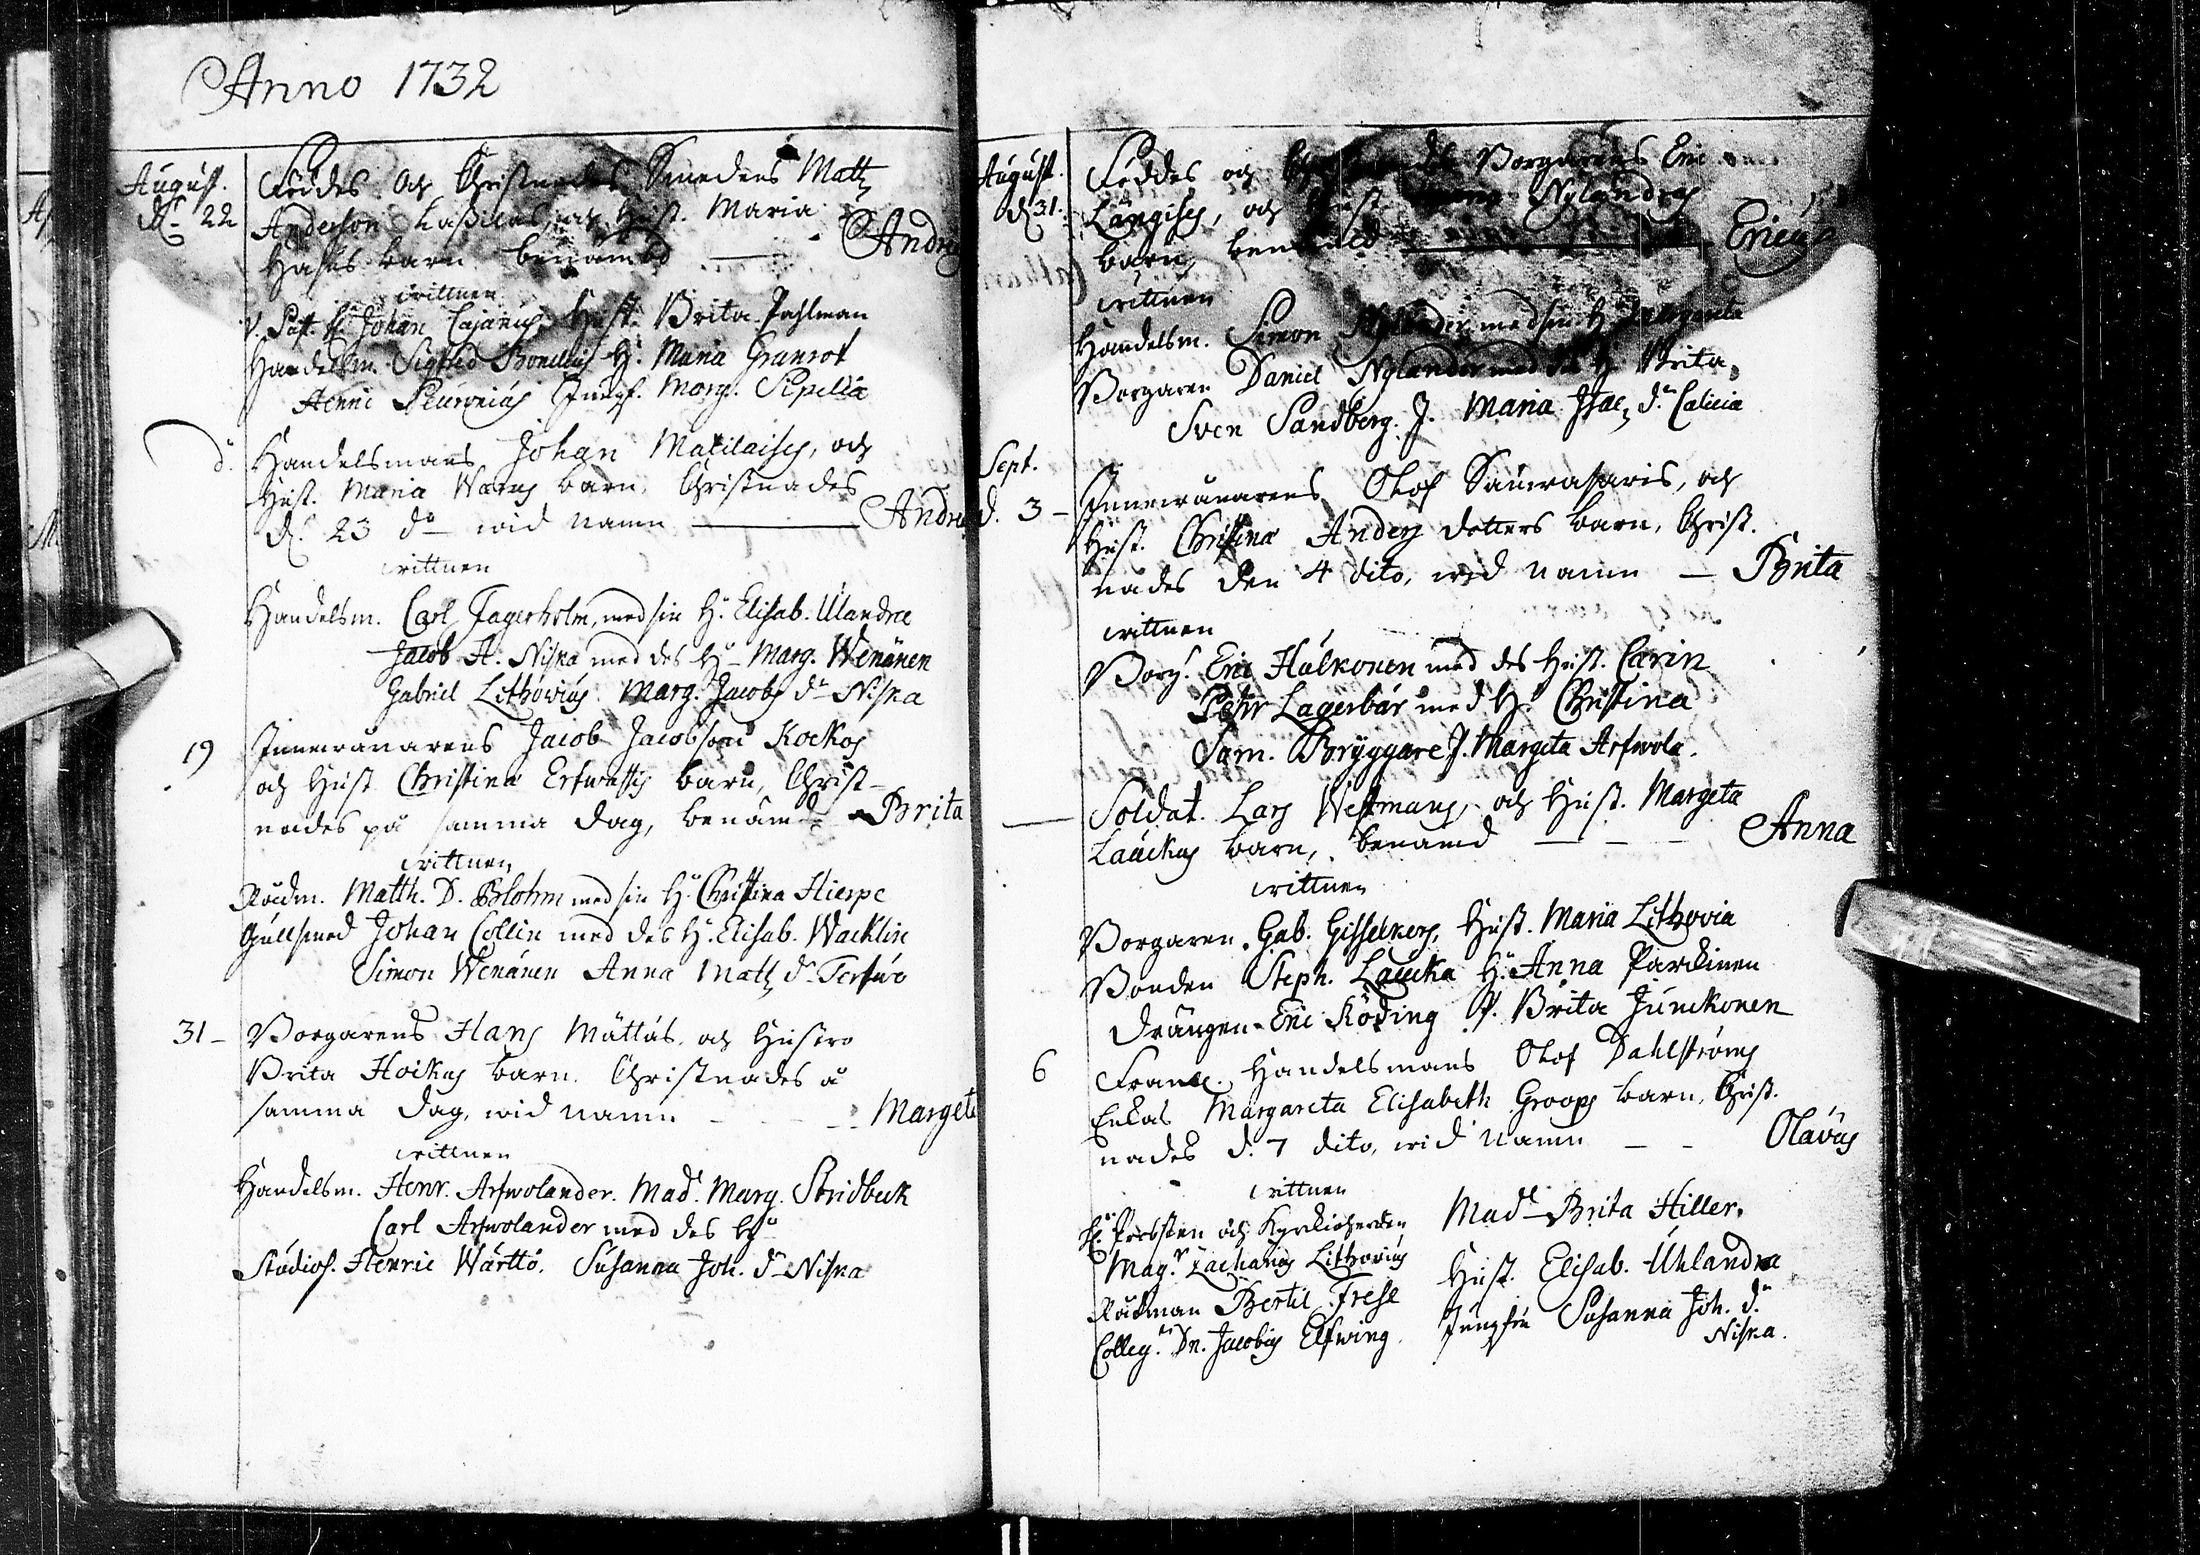 Anno 1732
August.
d. 22
Föddes och Christnades Smedens Matz
Anderson Laßilas och Hust. Maria
Hahks barn benämbd — Andre
wittnen
V. Past. H. Johan Cajanus Hust. Brita Pahlman
Handelsm. Sigfred Bonelius H. Maria Granrot
Henric Peuronius Jungf. Marg. Sipelia
d. Handelsmans Johan Matilaises, och
Hust. Maria Warus barn, Christnades
d. 23 do wid namn — Andre
wittnen
Handelsm. Carl Fagerholm, med sin H. Elisab. Ulandra
Jacob H. Niska med des H. Marg. Wenänen
Gabriel Lithovius Marg. Jacobs dr Niska
19 Innewånarens Jacob Jacobsons Kockos
och Hust. Christina Erfwastis barn, Christ-
nades på samma dag, benämd Brita
wittnen
Rådm. Matth. D. Blohm med sin H. Christina Hierpe
Gullsmed Johan Collin med des H. Elisab. Wacklin
Simon Wenänen Anna Matz dr Terfwo
31 - Borgarens Hans Mättäs och Hustro
Brita Hoikas barn. Christnades å
samma dag, wid namn - - - Margeta
wittnen
Handelsm. Henr. Arfwolander. Mad. Marg. Stridbeck
Carl Arfwolander med des H.
Studios. Henric Wärttö. Susanna Joh. dr Niska
August.
d. 31.
Föddes och Borgarens Eric
Långises, och Hust. Nylandres
barn, benämd — Ericus
wittnen
Handelsm. Simon Nylander med sin H. Margareta
Borgaren Daniel Nylander med sin H. Brita
Sven Sandberg. J. Maria Isac dr Calicia
Sept.
d. 3 - Inneworånarens Olof Sauwasaris, och
Hust. Christina Anders dotters barn, Christ-
nades den 4 dito, wid namn — Brita
wittnen
Borg. Eric Halkonen med des Hust. Carin
Pehr Lagerbär med H. Christina
Sam. Bryggare J. Margeta Arfwola.
— Soldat. Lars Westmans, och Hust. Margeta
Lauckas barn, benämd — - - Anna
wittnen
Borgaren. Gab. Gisselkors, Hust. Maria Lithovia
Bonden Steph. Laucka H. Anna Parckinen
Drängen Eric Röding P. Brita Junckonen
6 Framl. Handelsmans Olof Dahlströms
Enkas Margareta Elisabeth Groops barn, Christ-
nades d. 7 dito, wid namn - - Olavus
wittnen
H. Probsten och Kyrckioherden Mad. Brita Hiller.
Mag. Zacharias Lithovius Hust. Elisab. Uhlandra
Rådman Bertil Frese Jungfru Susanna Joh. dr
Colleg. Dn. Jacobus Elfwing. Niska.